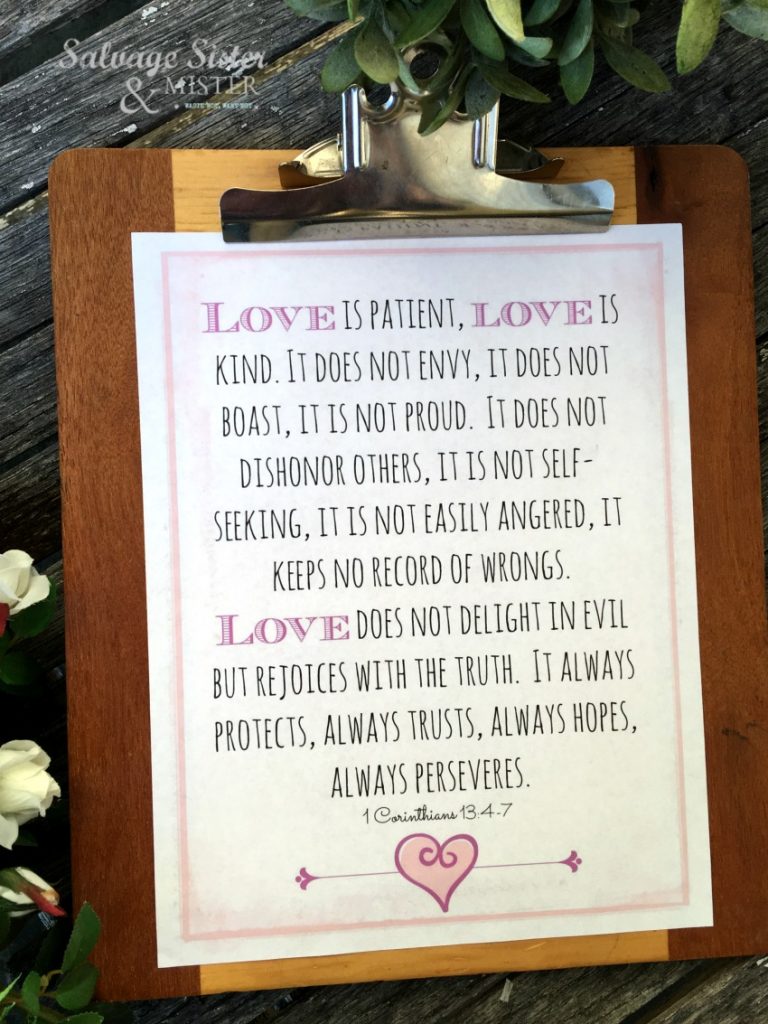 Salvage Sister
& MISTER
WASTE NOT, WANT NOT
LOVE IS PATIENT, LOVE IS
KIND. IT DOES NOT ENVY, IT DOES NOT
BOAST, IT IS NOT PROUD. IT DOES NOT
DISHONOR OTHERS, IT IS NOT SELF-
SEEKING, IT IS NOT EASILY ANGERED, IT
KEEPS NO RECORD OF WRONGS.
LOVE DOES NOT DELIGHT IN EVIL
BUT REJOICES WITH THE TRUTH. IT ALWAYS
PROTECTS, ALWAYS TRUSTS, ALWAYS HOPES,
ALWAYS PERSEVERES.
1 Corinthians 13:4-7